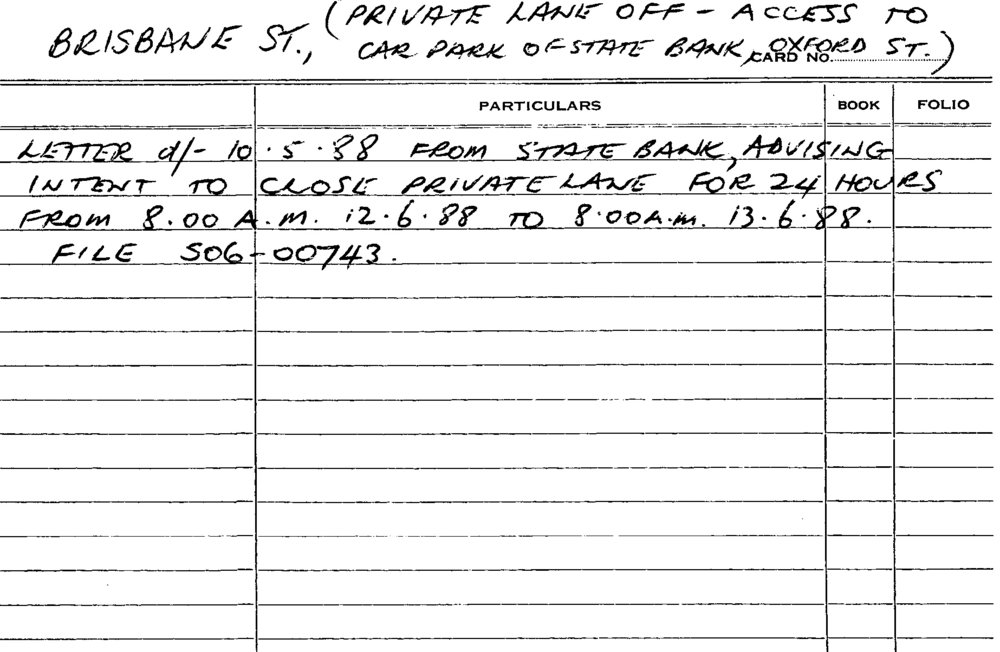 (PRIVATE LANE OFF - ACCESS TO
BRISBANE ST., CAR PARK OF STATE BANK, OXFORD ST.)
CARD NO.
PARTICULARS BOOK FOLIO
LETTER d/- 10.5.88 FROM STATE BANK, ADVISING
INTENT TO CLOSE PRIVATE LANE FOR 24 HOURS
FROM 8.00 A.M. 12.6.88 TO 8.00A.M. 13.6.88.
FILE S06-00743.